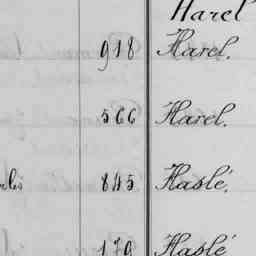 Harel
918 Harel.
566 Harel.
845 Haslé.
179 Haslé